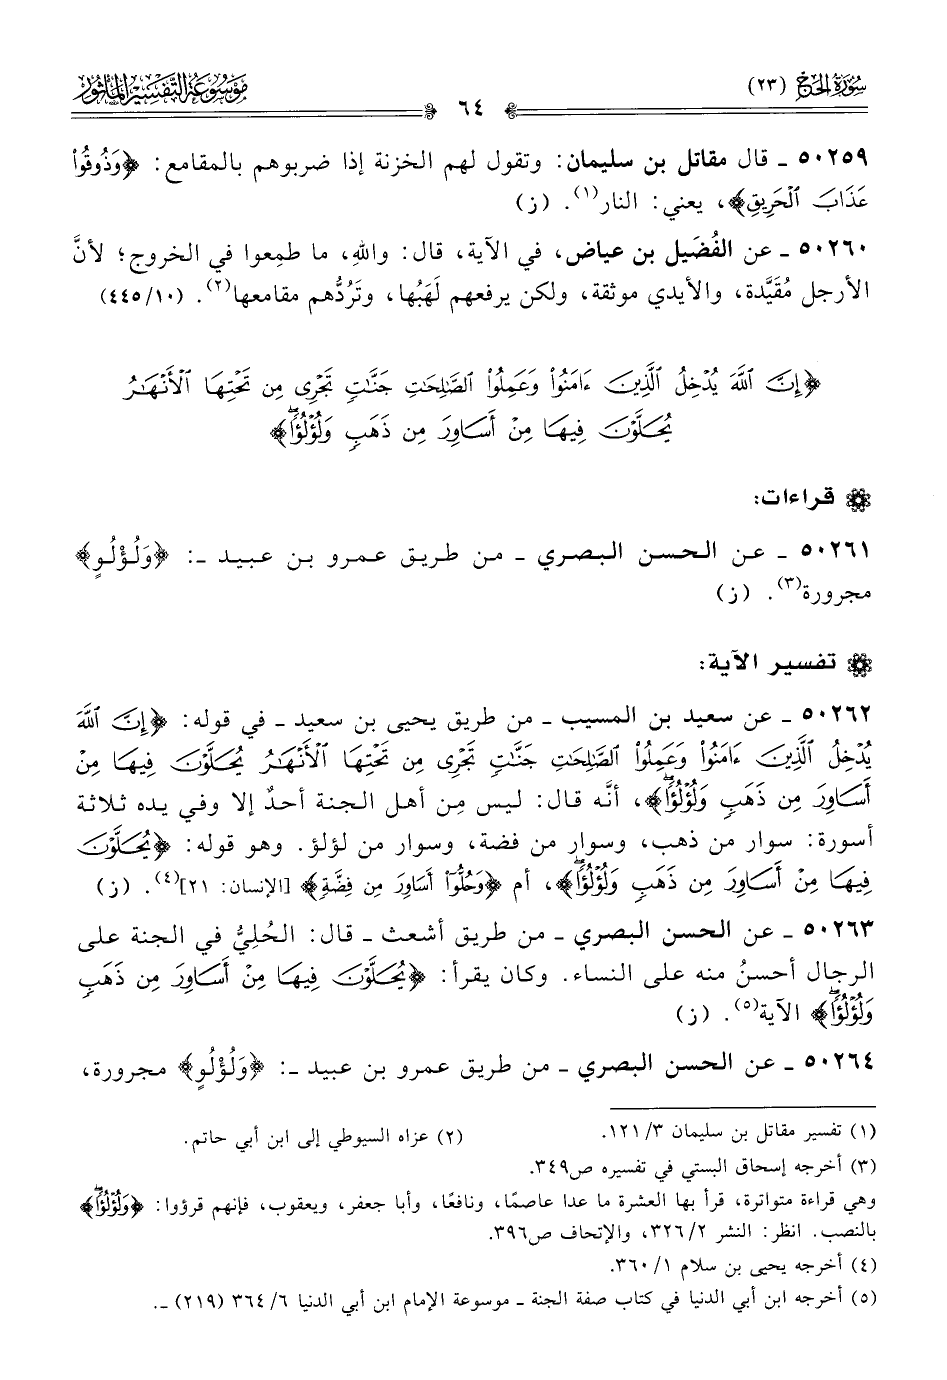 سُورَةُ الحَجّ (٢٣)
٦٤
مَوْسُوعَة التَّفْسِيْر المَأْثُور
٥٠٢٥٩ ـ قال مقاتل بن سليمان: وتقول لهم الخزنة إذا ضربوهم بالمقامع: ﴿وَذُوقُوا۟
عَذَابَ ٱلْحَرِيقِ﴾، يعني: النار(١). (ز)
٥٠٢٦٠ ـ عن الفُضَيل بن عياض، في الآية، قال: واللهِ، ما طمِعوا في الخروج؛ لأنَّ
الأرجل مُقَيَّدة، والأيدي موثقة، ولكن يرفعهم لَهَبُها، وتَرُدُّهم مقامعها(٢). (١٠/٤٤٥)
﴿إِنَّ ٱللَّهَ يُدْخِلُ ٱلَّذِينَ ءَامَنُوا۟ وَعَمِلُوا۟ ٱلصَّـٰلِحَـٰتِ جَنَّـٰتٍ تَجْرِى مِن تَحْتِهَا ٱلْأَنْهَـٰرُ
يُحَلَّوْنَ فِيهَا مِنْ أَسَاوِرَ مِن ذَهَبٍ وَلُؤْلُؤًا ۖ﴾
قراءات:
٥٠٢٦١ ـ عن الحسن البصري ـ من طريق عمرو بن عبيد ـ: ﴿وَلُؤْلُوٍ﴾
مجرورة(٣). (ز)
تفسير الآية:
٥٠٢٦٢ ـ عن سعيد بن المسيب ـ من طريق يحيى بن سعيد ـ في قوله: ﴿إِنَّ ٱللَّهَ
يُدْخِلُ ٱلَّذِينَ ءَامَنُوا۟ وَعَمِلُوا۟ ٱلصَّـٰلِحَـٰتِ جَنَّـٰتٍ تَجْرِى مِن تَحْتِهَا ٱلْأَنْهَـٰرُ يُحَلَّوْنَ فِيهَا مِنْ
أَسَاوِرَ مِن ذَهَبٍ وَلُؤْلُؤًا ۖ﴾، أنَّه قال: ليس مِن أهل الجنة أحدٌ إلا وفي يده ثلاثة
أسورة: سوار من ذهب، وسوار من فضة، وسوار من لؤلؤ. وهو قوله: ﴿يُحَلَّوْنَ
فِيهَا مِنْ أَسَاوِرَ مِن ذَهَبٍ وَلُؤْلُؤًا ۖ﴾، أم ﴿وَحُلُّوٓا۟ أَسَاوِرَ مِن فِضَّةٍ﴾ [الإنسان: ٢١](٤). (ز)
٥٠٢٦٣ ـ عن الحسن البصري ـ من طريق أشعث ـ قال: الحُلِيُّ في الجنة على
الرجال أحسنُ منه على النساء. وكان يقرأ: ﴿يُحَلَّوْنَ فِيهَا مِنْ أَسَاوِرَ مِن ذَهَبٍ
وَلُؤْلُؤًا ۖ﴾ الآية(٥). (ز)
٥٠٢٦٤ ـ عن الحسن البصري ـ من طريق عمرو بن عبيد ـ: ﴿وَلُؤْلُوٍ﴾ مجرورة،
(١) تفسير مقاتل بن سليمان ٣/ ١٢١. (٢) عزاه السيوطي إلى ابن أبي حاتم.
(٣) أخرجه إسحاق البستي في تفسيره ص٣٤٩.
وهي قراءة متواترة، قرأ بها العشرة ما عدا عاصمًا، ونافعًا، وأبا جعفر، ويعقوب، فإنهم قرؤوا: ﴿وَلُؤْلُؤًا ۖ﴾
بالنصب. انظر: النشر ٢/ ٣٢٦، والإتحاف ص٣٩٦.
(٤) أخرجه يحيى بن سلام ١/ ٣٦٠.
(٥) أخرجه ابن أبي الدنيا في كتاب صفة الجنة ـ موسوعة الإمام ابن أبي الدنيا ٦/ ٣٦٤ (٢١٩) ـ.